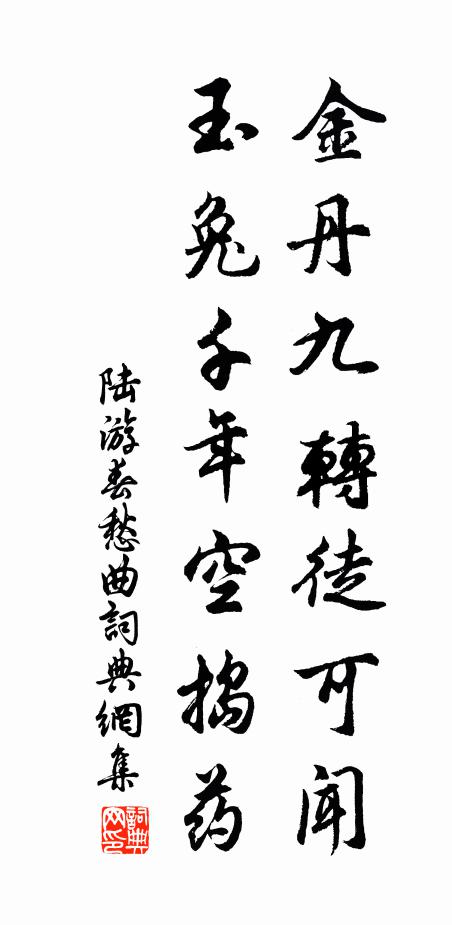 金丹九轉徒可聞
玉兔千年空搗药
陆游春愁曲詞典網集
詞典网印